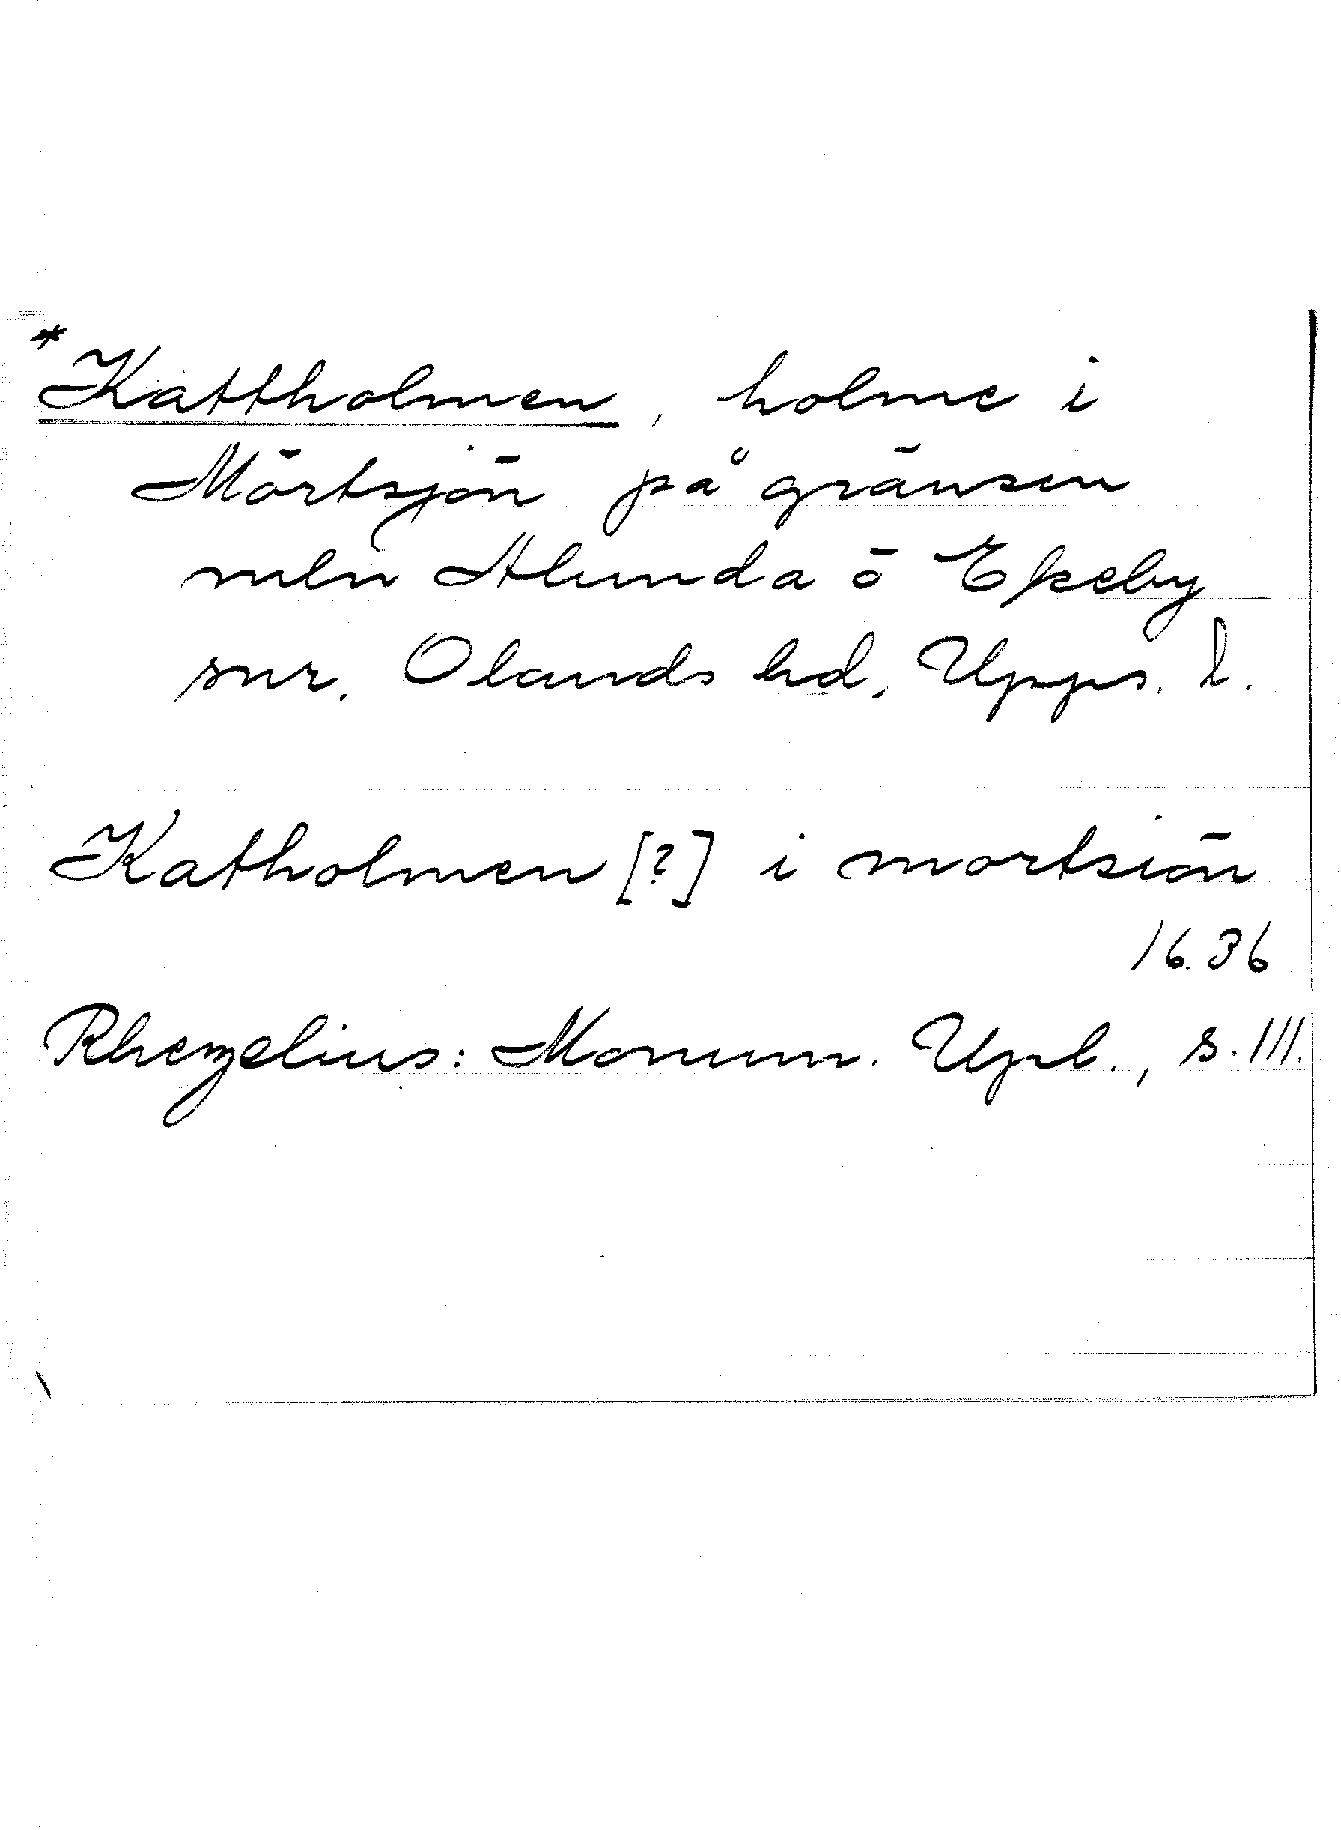 *Kattholmen, holme i
Mörtsjön på gränsen
mln Alunda o Ekeby
snr. Olands hd, Upps. l.
Katholmen [?] i mortsiön
1636
Rhezelius: Monum. Upl., s. 111.